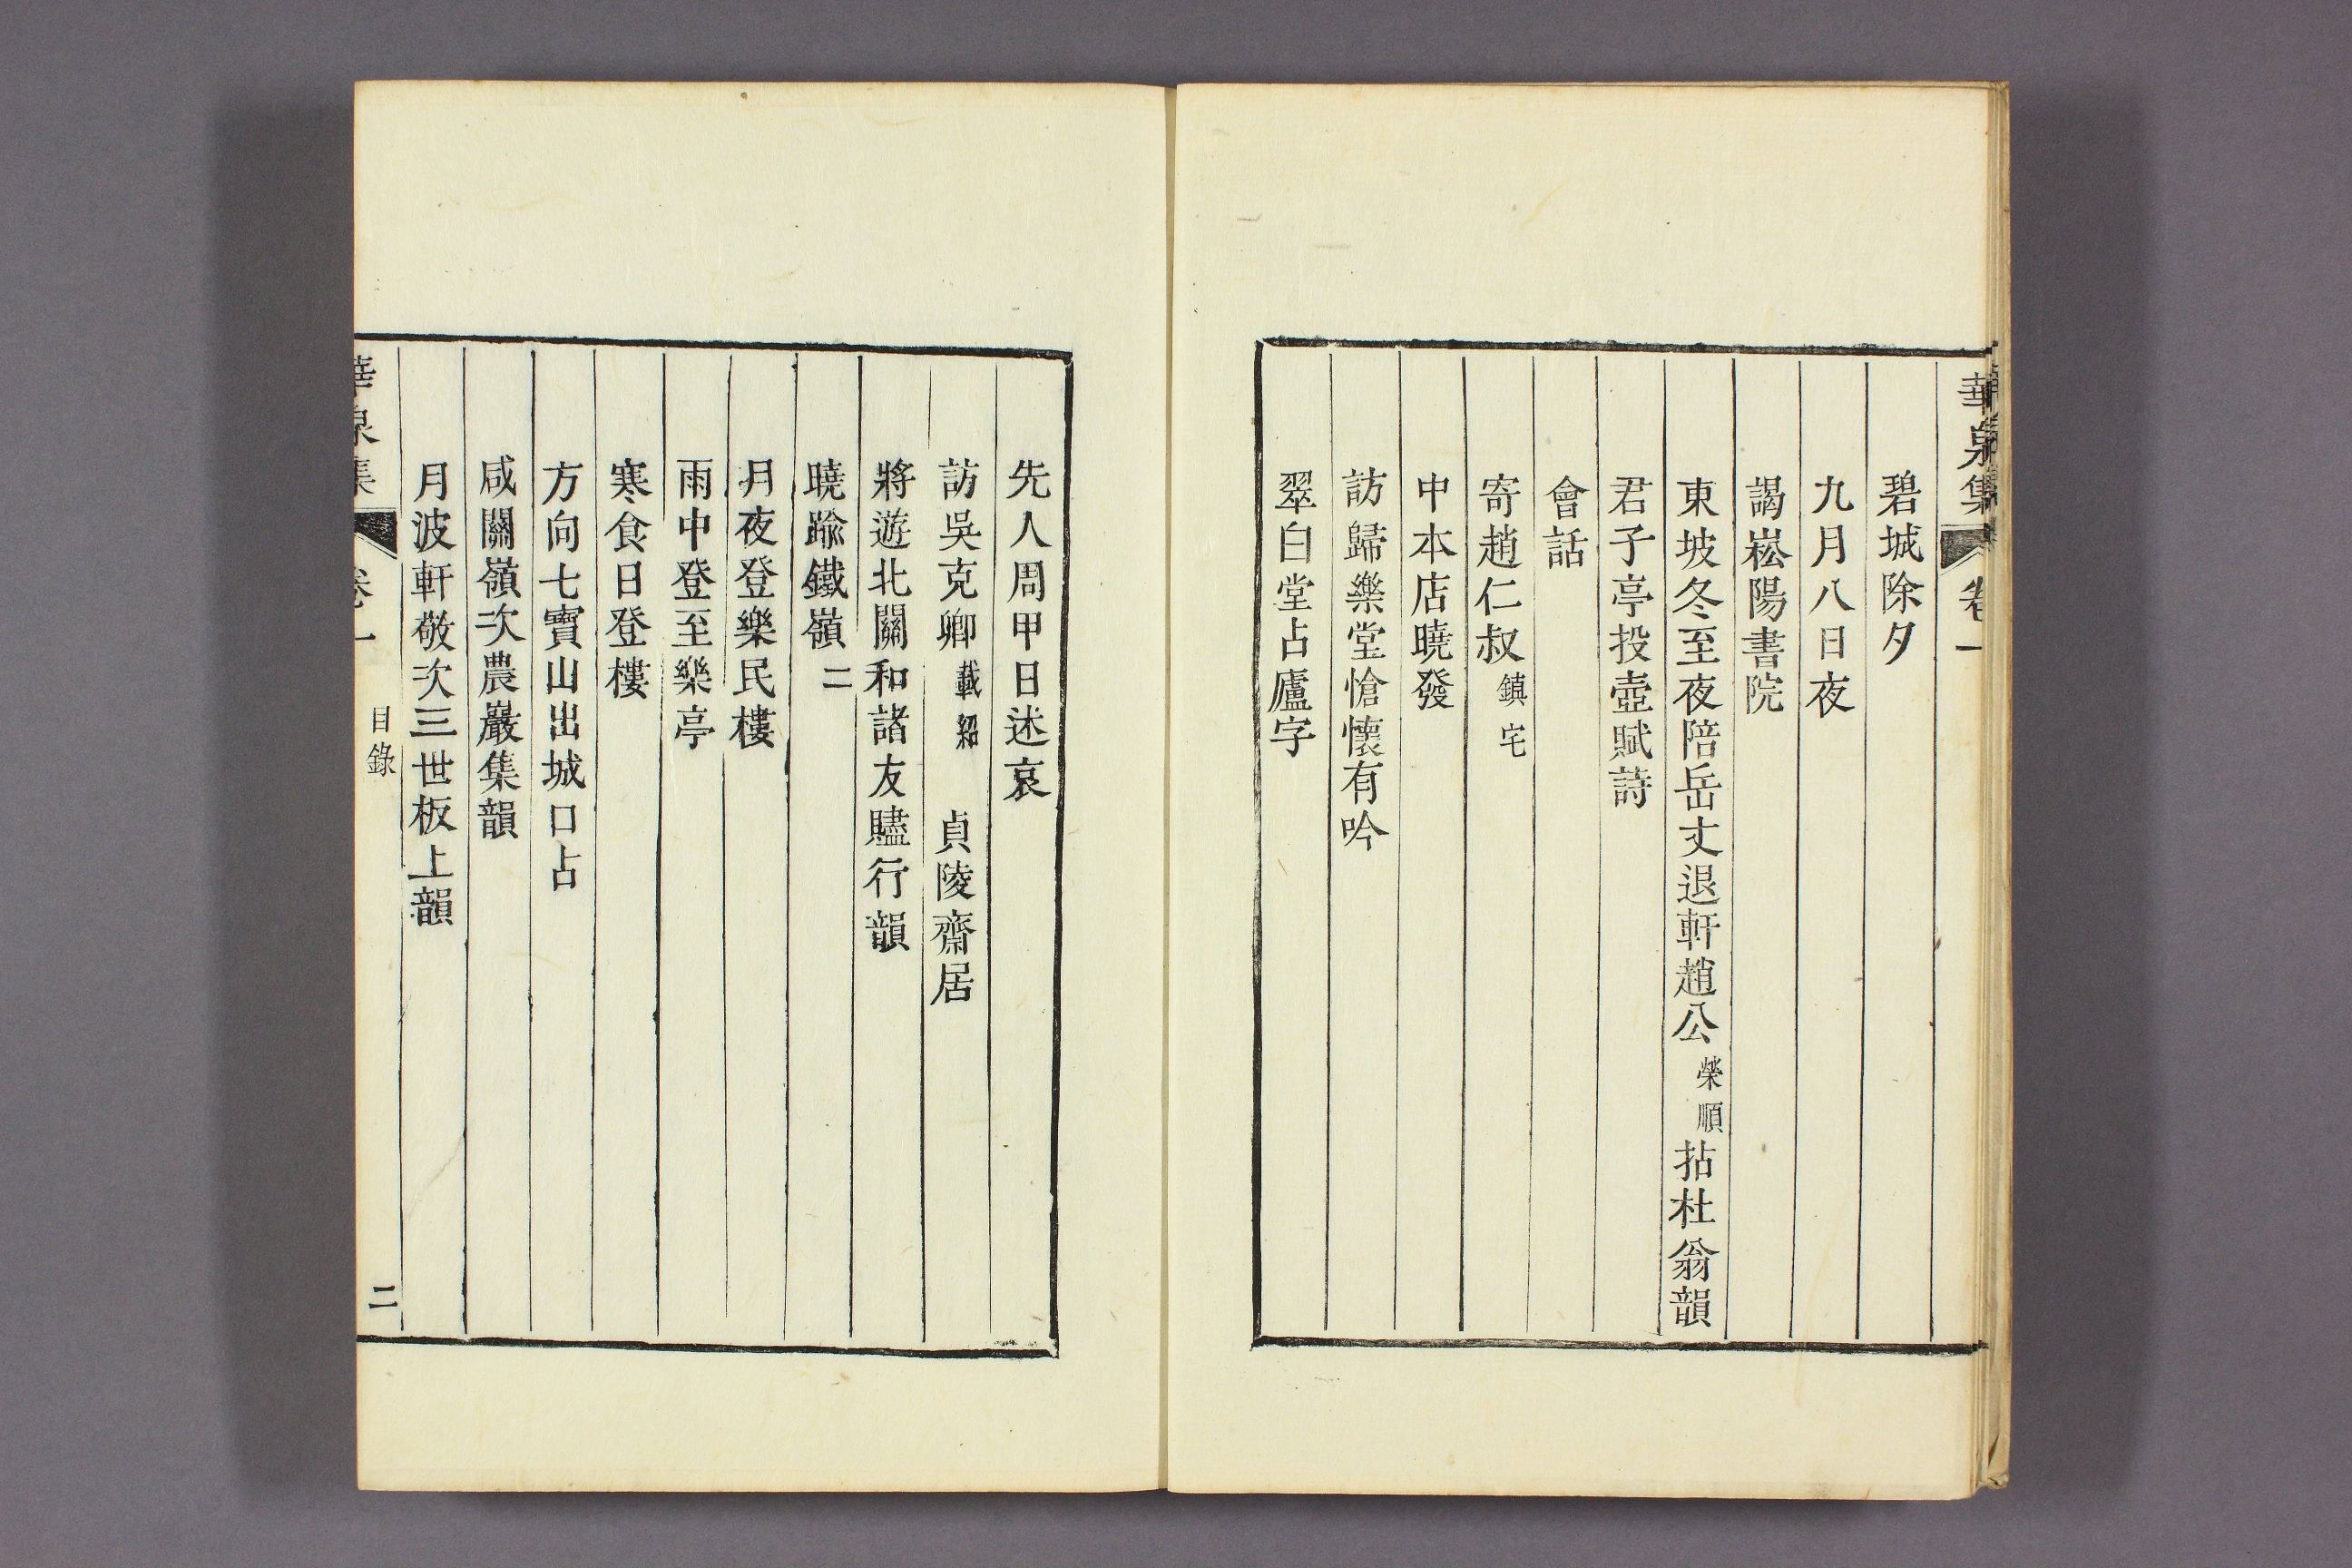 華泉集 卷一
碧城除夕
九月八日夜
謁崧陽書院
東坡冬至夜陪岳丈退軒趙公榮順拈杜翁韻
君子亭投壺賦詩
會話
寄趙仁叔鎮宅
中本店曉發
訪歸樂堂愴懷有吟
翠白堂占廬字
先人周甲日述哀
訪吳克卿載紹 貞陵齋居
將遊北關和諸友贐行韻
曉踰鐵嶺二
月夜登樂民樓
雨中登至樂亭
寒食日登樓
方向七寶山出城口占
咸關嶺次農巖集韻
月波軒敬次三世板上韻
華泉集 卷一 目錄 二